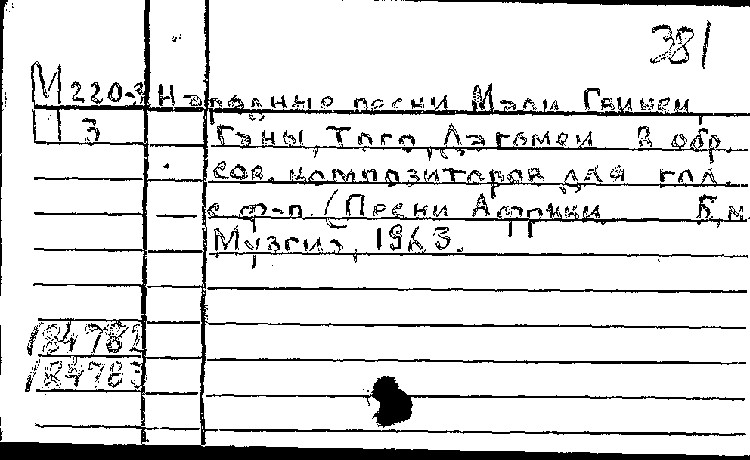 381
М 220-3 Народные песни Мали, Гвинеи,
П 3 Ганы, Того, Дагомеи в обр.
сов. композиторов для гол.
с ф-п. (Песни Африки Б.м.
Музгиз, 1963.
184782
184783